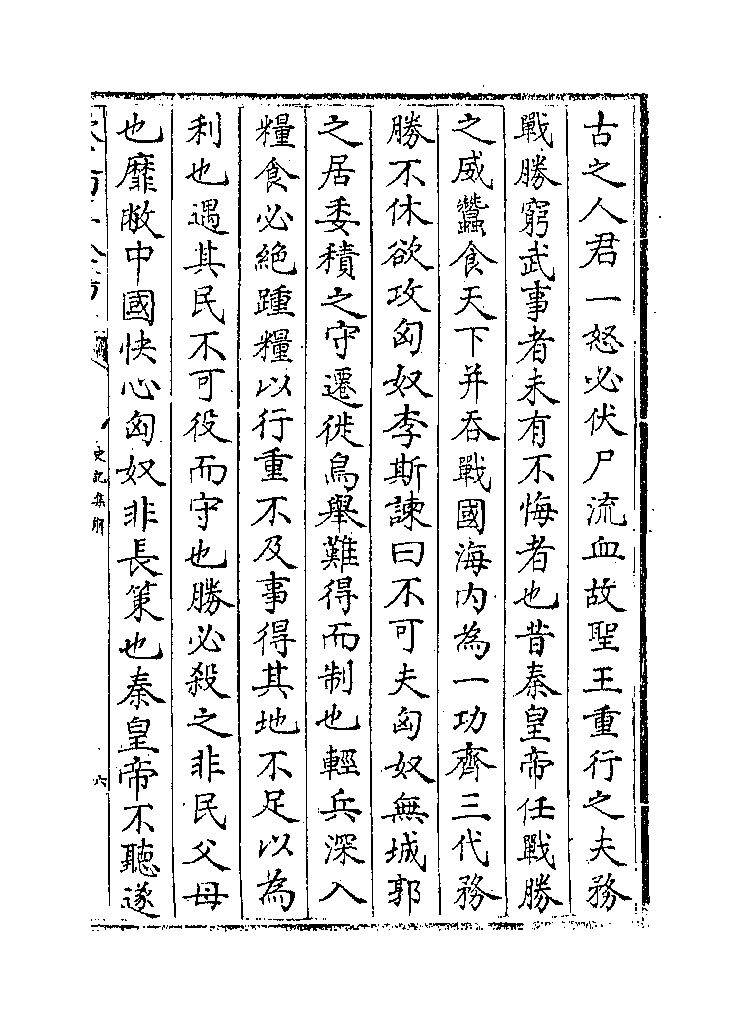 古之人君一怒必伏尸流血故聖王重行之夫務
戰勝窮武事者未有不悔者也昔秦皇帝任戰勝
之威蠶食天下并吞戰國海內為一功齊三代務
勝不休欲攻匈奴李斯諫曰不可夫匈奴無城郭
之居委積之守遷徙鳥舉難得而制也輕兵深入
糧食必絕踵糧以行重不及事得其地不足以為
利也遇其民不可役而守也勝必殺之非民父母
也靡敝中國快心匈奴非長策也秦皇帝不聽遂
史記集解
六